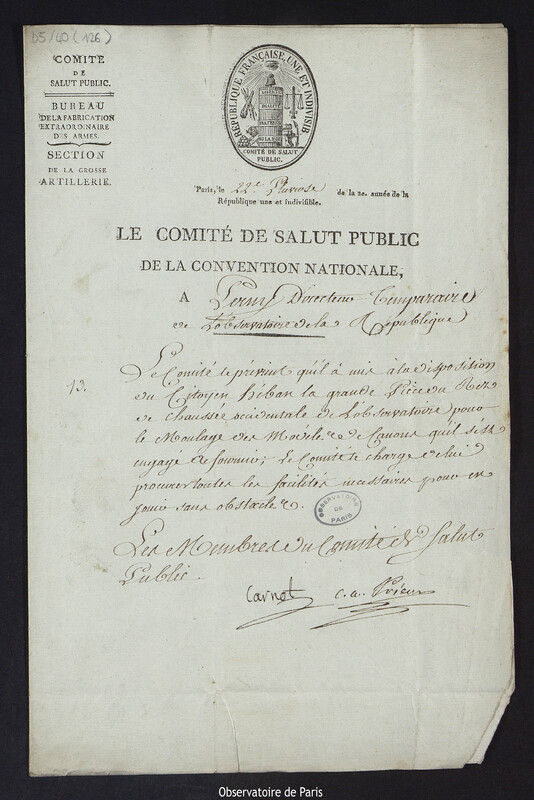 D5/40 (126)
COMITÉ
DE
SALUT PUBLIC.
BUREAU
DE LA FABRICATION
EXTRAORDINAIRE
DES ARMES.
SECTION
DE LA GROSSE
ARTILLERIE.
RÉPUBLIQUE FRANÇAISE, UNE ET INDIVISIB
COMITÉ DE SALUT
PUBLIC.
Paris, le 22e Pluviose de la 2e. année de la
République une et indivisible.
LE COMITÉ DE SALUT PUBLIC
DE LA CONVENTION NATIONALE,
A Perny Directeur Temporaire
de L'observatoire de la République
13.
Le Comité te prévient qu'il à mis à la disposition
du Citoyen héban la grande Pièce du Rez
de chaussée occidentale de L'observatoire pour
le Moulage des Modèles de Canons qu'il s'est
engagé de fournir; Le Comité te charge de lui
procurer toutes les facilités nécessaires pour en
jouir sans obstacles.
OBSERVATOIRE
DE
PARIS
Les Membres du Comité de Salut
Public.
Carnot C. a. Prieur
Observatoire de Paris